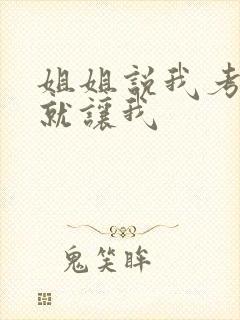 姐姐説我考
就讓我
鬼笑眸